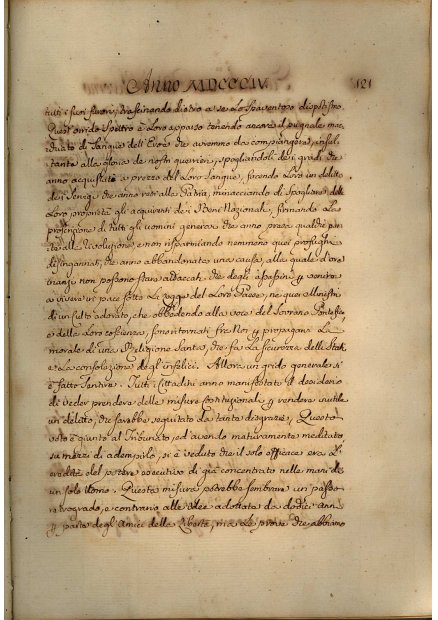 Anno MDCCCIV 121
tutti i suoi furori, trascinando dietro a se lo spaventoso dispotismo.
Quest'orrido Spettro è Loro apparso tenendo ancora il pugnale mac-
chiato di Sangue dell'Eroe che avremmo da compiangere, insul-
tando alla gloria de nostri guerrieri, spogliandoli dei gradi che
anno acquistati a prezzo del Loro Sangue, facendo Loro un delitto
dei Servigj che anno resi alla Patria, minacciando di spogliare delle
Loro proprietà gli acquirenti dei Beni Nazionali, firmando La
proscrizione di tutti gli uomini generosi che anno presa qualche par-
te alla Rivoluzione, e non risparmiando nemmeno quei profughi
disingannati, che anno abbandonata una causa, alla quale d'ora
innanzi non possono stare attaccati che degli assassini, p venire
a vivere in pace sotto Le Leggi del Loro Paese, ne quei Ministri
di un culto adorato, che obbedendo alla voce del Sovrano Pontefice
e della Loro coscienza, sono tornati fra Noi p propagare La
morale di una Religione Santa, che fa La sicurezza delli Stati
e La consolazione degl'infelici. Allora un grido generale si
è fatto Sentire. Tutti i Cittadini anno manifestato il desiderio
di veder prendere delle misure costituzionali p rendere inutile
un delitto, che sarebbe seguitato da tante disgrazie. Questo
voto è giunto al Tribunato, ed avendo maturamente meditato
su i mezzi di adempirlo, si è veduto che il solo efficace era L'e-
redità del potere esecutivo di già concentrato nelle mani di
un solo Uomo. Questa misura potrebbe sembrare un passo
retrogrado, e contrario alle idee adottate da dodici anni
p parte degli Amici della Libertà, ma Le prove che abbiamo